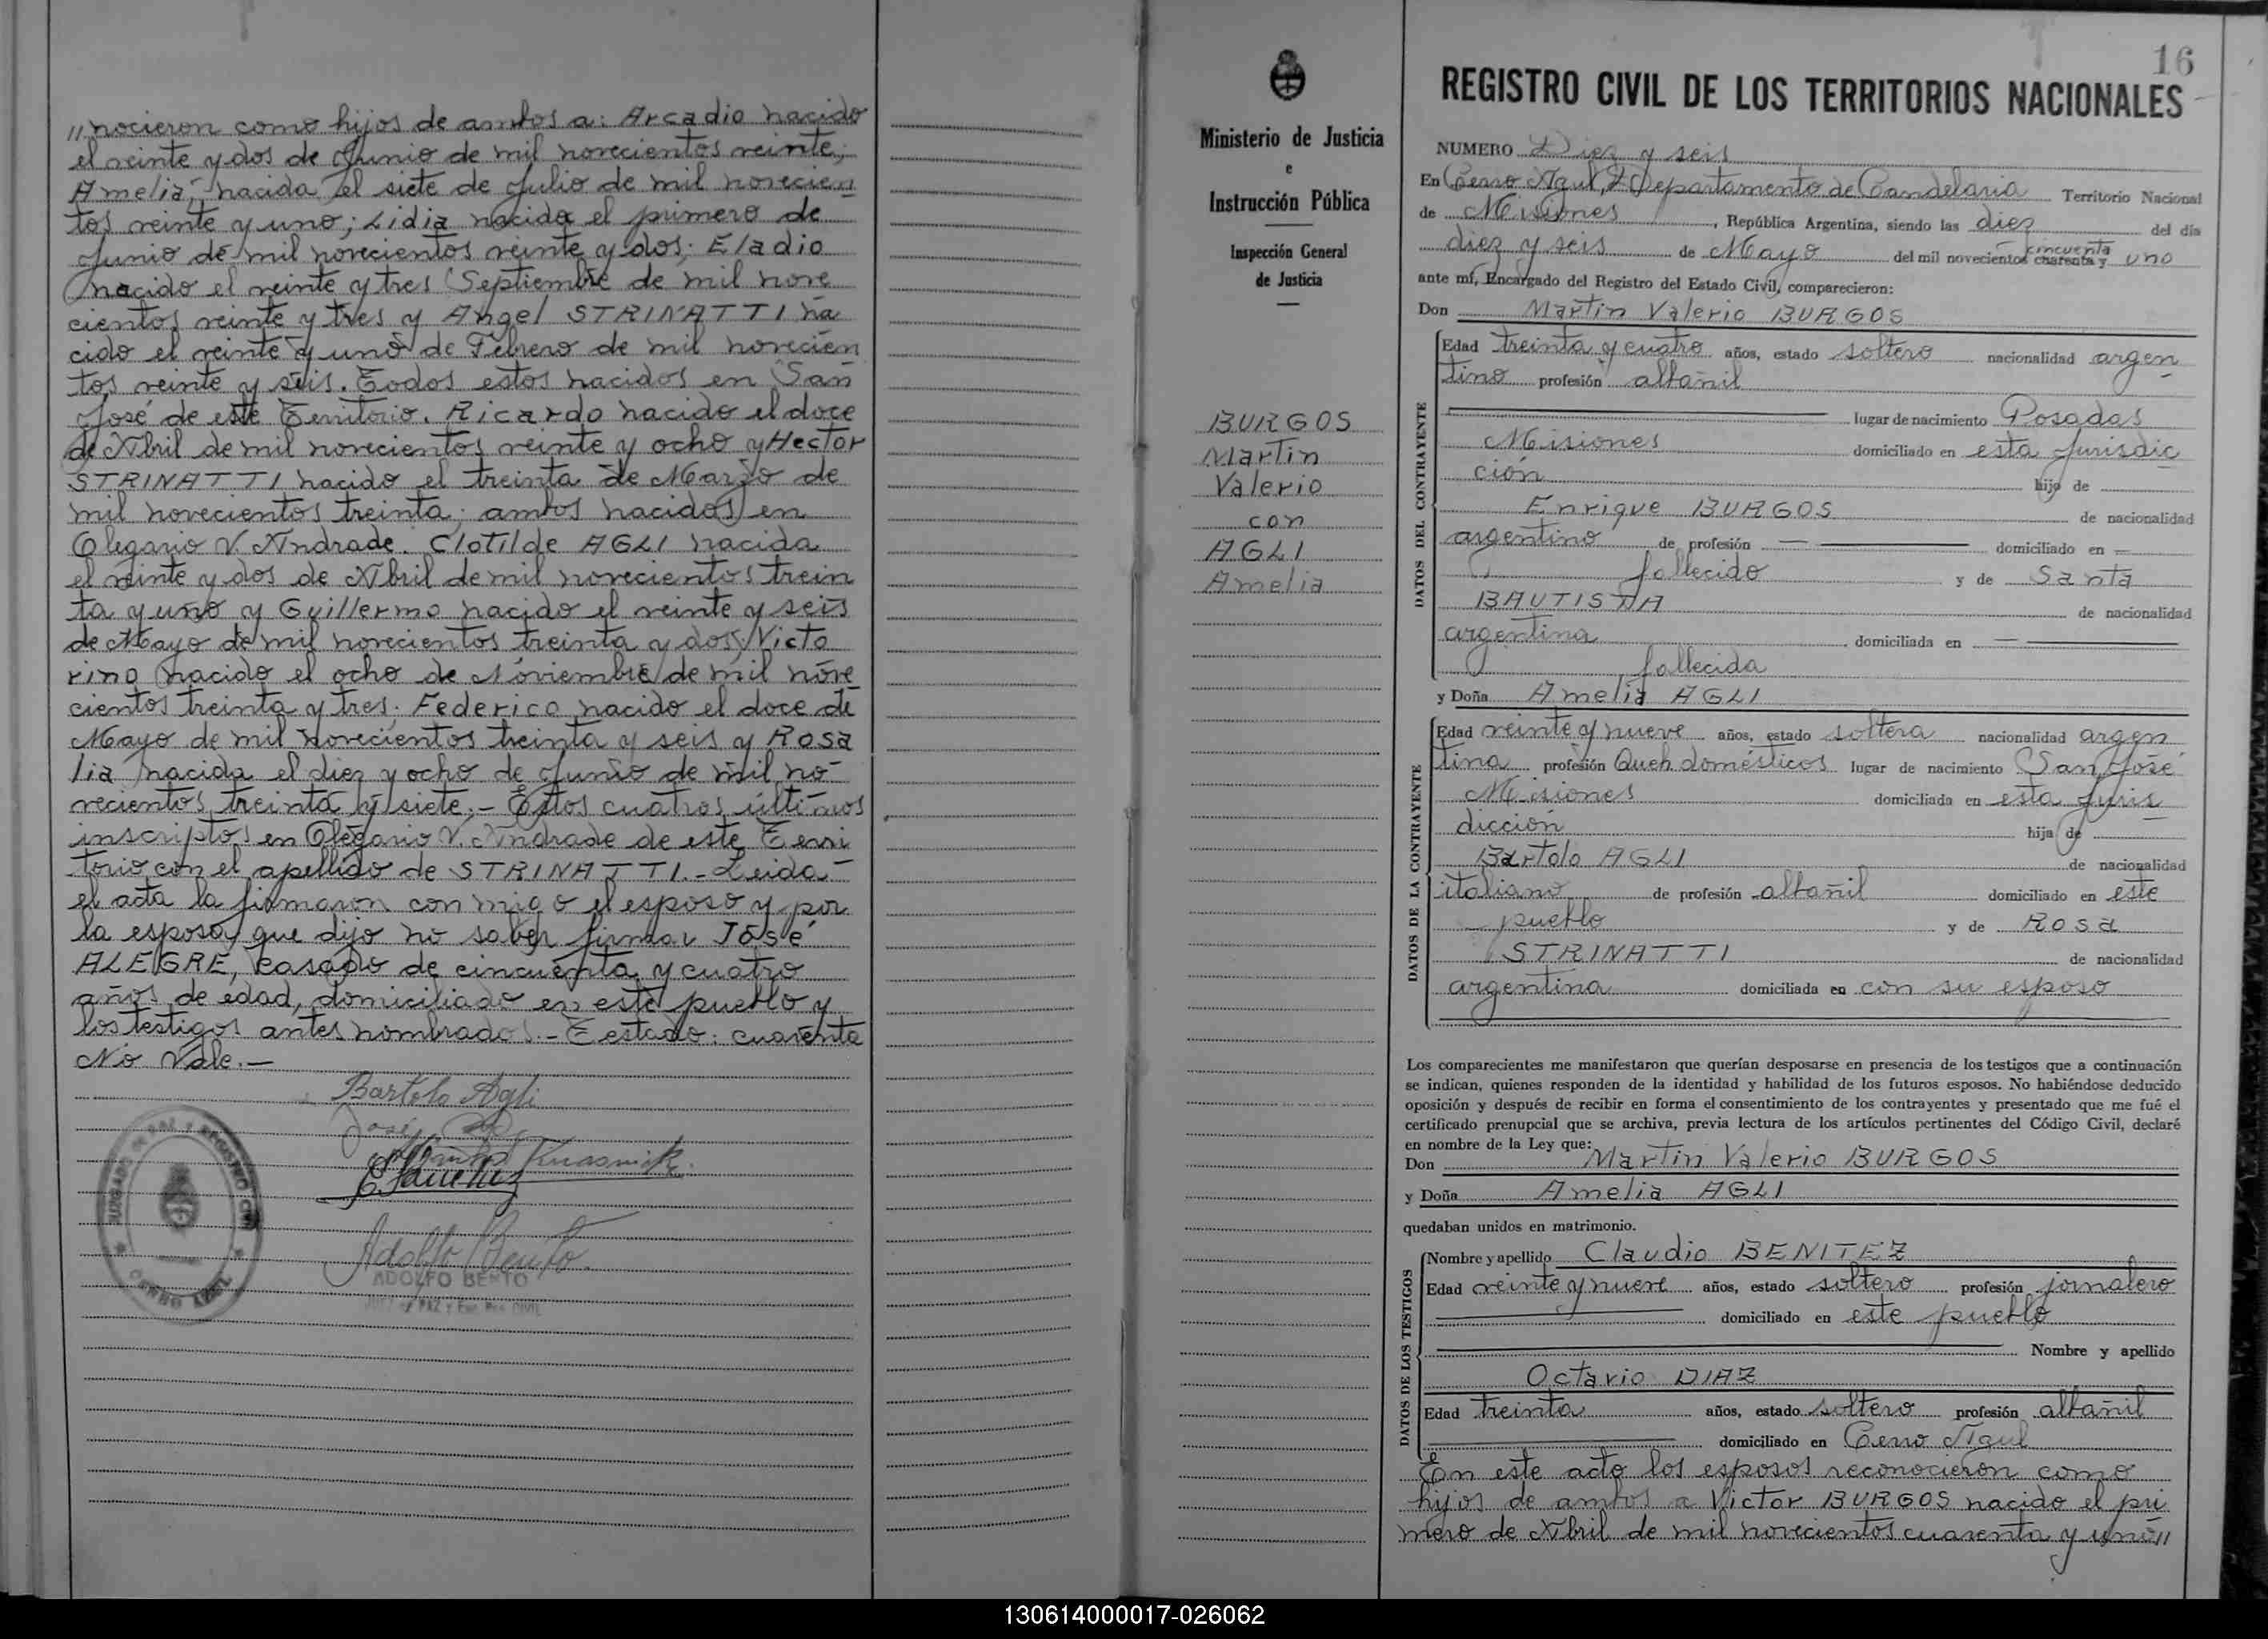 //nocieron como hijos de ambos a: Arcadio nacido
el veinte y dos de Junio de mil novecientos veinte;
Amelia, nacida el siete de Julio de mil novecien
tos veinte y uno; Lidia nacida el primero de
Junio de mil novecientos veinte y dos; Eladio
nacido el veinte y tres Septiembre de mil nove
cientos veinte y tres y Angel STRINATTI na
cido el veinte y uno de Febrero de mil novecien
tos veinte y seis. Todos estos nacidos en San
José de este Territorio. Ricardo nacido el doce
de Abril de mil novecientos veinte y ocho y Hector
STRINATTI nacido el treinta de Marzo de
mil novecientos treinta; ambos nacidos en
Olegario V. Andrade. Clotilde AGLI nacida
el veinte y dos de Abril de mil novecientos trein
ta y uno y Guillermo nacido el veinte y seis
de Mayo de mil novecientos treinta y dos; Victo
rino nacido el ocho de Noviembre de mil nove
cientos treinta y tres; Federico nacido el doce de
Mayo de mil novecientos treinta y seis y Rosa
lia nacida el diez y ocho de Junio de mil no-
vecientos treinta y siete.- Estos cuatros últimos
inscriptos en Olegario V. Andrade de este Terri
torio con el apellido de STRINATTI.- Leida
el acta la firmaron con migo el esposo y por
la esposa que dijo no saber firmar José
ALEGRE, casado de cincuenta y cuatro
años de edad, domiciliado en este pueblo y
los testigos antes nombrados.- Testado: cuarenta
No Vale.-
Bartolo Agli
José
E. Sanchez
Adolfo Bento.
ADOLFO BENTO
JUEZ de PAZ y Enc. Reg. CIVIL
JUZGADO DE PAZ Y REGISTRO CIVIL
CERRO AZUL
Ministerio de Justicia
e
Instrucción Pública
Inspección General
de Justicia
BURGOS
Martin
Valerio
con
AGLI
Amelia
16
REGISTRO CIVIL DE LOS TERRITORIOS NACIONALES
NUMERO Diez y seis
En Cerro Azul, Departamento de Candelaria Territorio Nacional
de Misiones, República Argentina, siendo las diez del día
diez y seis de Mayo del mil novecientos cuarenta y cincuenta uno
ante mí, Encargado del Registro del Estado Civil, comparecieron:
Don Martin Valerio BURGOS
DATOS DEL CONTRAYENTE
Edad treinta y cuatro años, estado soltero nacionalidad argen
tino profesión albañil
lugar de nacimiento Posadas
Misiones domiciliado en esta Jurisdic
ción hijo de
Enrique BURGOS de nacionalidad
argentino de profesión — domiciliado en —
fallecido y de Santa
BAUTISTA de nacionalidad
argentina domiciliada en —
fallecida
y Doña Amelia AGLI
DATOS DE LA CONTRAYENTE
Edad veinte y nueve años, estado soltera nacionalidad argen
tina profesión Queh. domésticos lugar de nacimiento San José
Misiones domiciliada en esta Juris
dicción hija de
Bartolo AGLI de nacionalidad
italiano de profesión albañil domiciliado en este
pueblo y de Rosa
STRINATTI de nacionalidad
argentina domiciliada en con su esposo
Los comparecientes me manifestaron que querían desposarse en presencia de los testigos que a continuación
se indican, quienes responden de la identidad y habilidad de los futuros esposos. No habiéndose deducido
oposición y después de recibir en forma el consentimiento de los contrayentes y presentado que me fué el
certificado prenupcial que se archiva, previa lectura de los artículos pertinentes del Código Civil, declaré
en nombre de la Ley que:
Don Martin Valerio BURGOS
y Doña Amelia AGLI
quedaban unidos en matrimonio.
DATOS DE LOS TESTIGOS
Nombre y apellido Claudio BENITEZ
Edad veinte y nueve años, estado soltero profesión jornalero
domiciliado en este pueblo
Nombre y apellido
Octavio DIAZ
Edad treinta años, estado soltero profesión albañil
domiciliado en Cerro Azul
En este acto los esposos reconocieron como
hijos de ambos a Victor BURGOS nacido el pri
mero de Abril de mil novecientos cuarenta y uno//
130614000017-026062